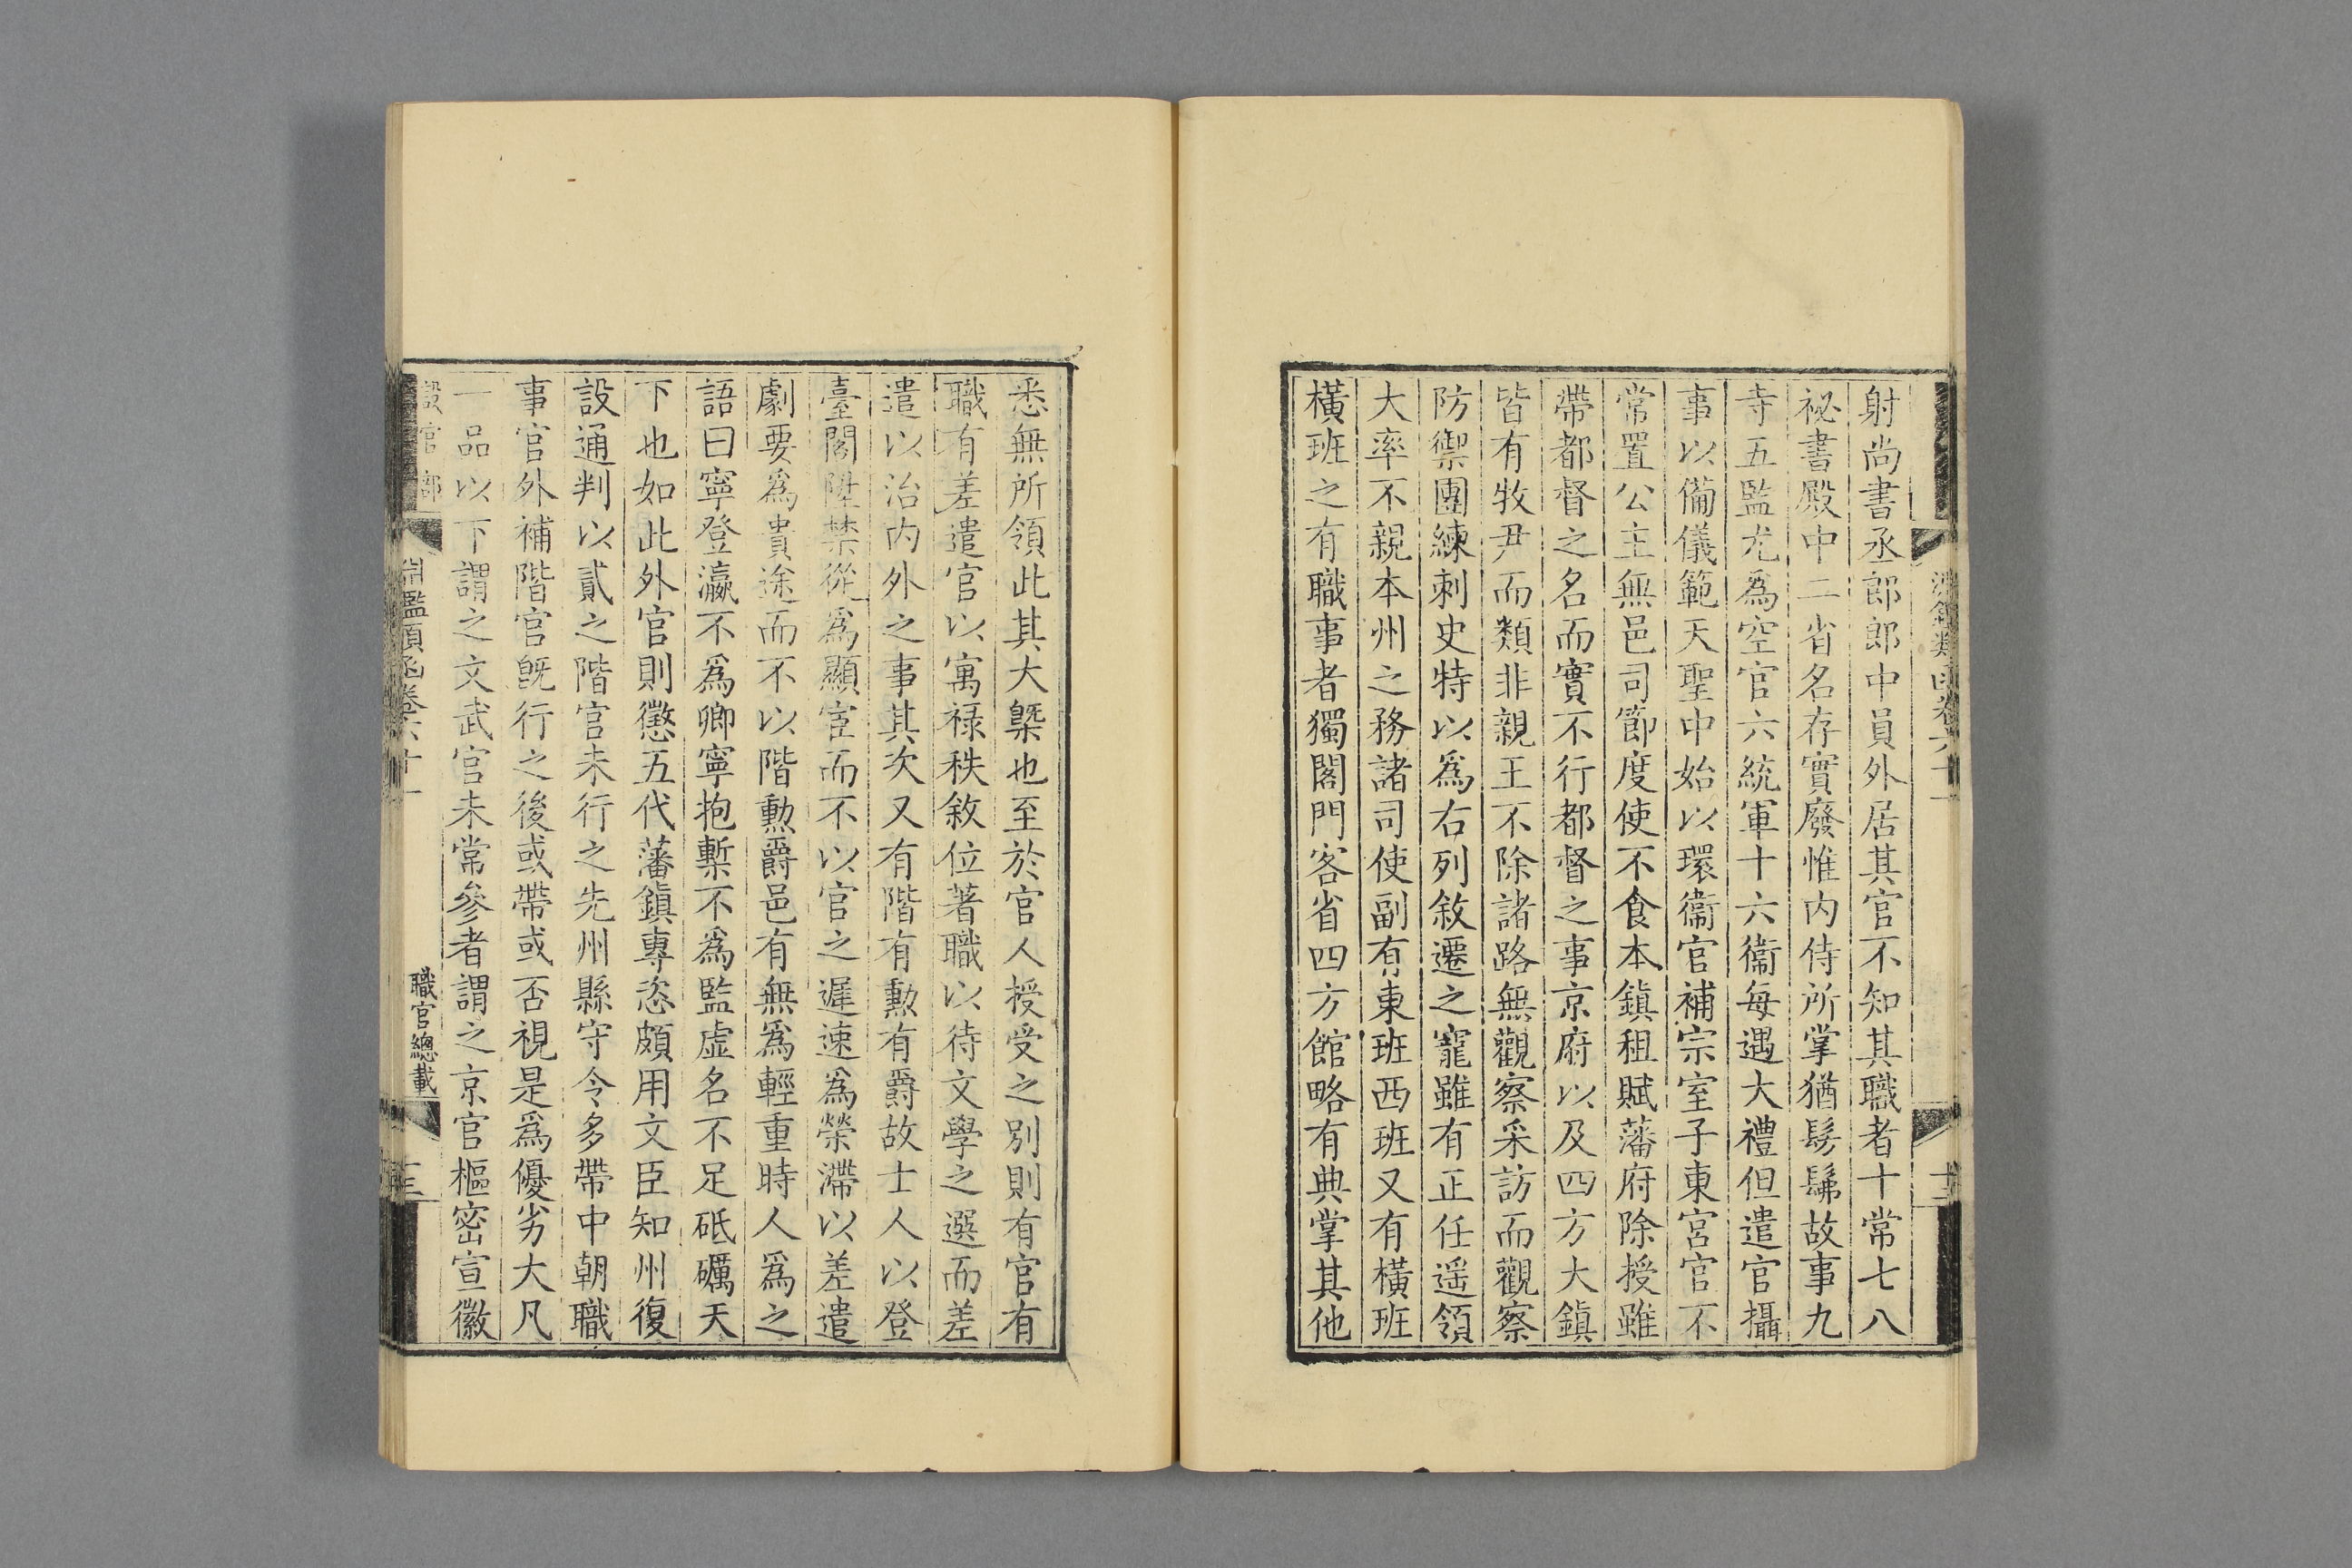 射尚書丞郎郎中員外居其官不知其職者十常七八
祕書殿中二省名存實廢惟内侍所掌猶髣髴故事九
寺五監尤爲空官六統軍十六衞每遇大禮但遣官攝
事以備儀範天聖中始以環衞官補宗室子東宮官不
常置公主無邑司節度使不食本鎮租賦藩府除授雖
帶都督之名而實不行都督之事京府以及四方大鎮
皆有牧尹而類非親王不除諸路無觀察采訪而觀察
防禦團練刺史特以爲右列敘遷之寵雖有正任遥領
大率不親本州之務諸司使副有東班西班又有橫班
橫班之有職事者獨閣門客省四方館略有典掌其他
悉無所領此其大槩也至於官人授受之别則有官有
職有差遣官以寓禄秩敘位著職以待文學之選而差
遣以治内外之事其次又有階有勲有爵故士人以登
臺閣陞禁從爲顯宦而不以官之遲速爲榮滯以差遣
劇要爲貴途而不以階勲爵邑有無爲輕重時人爲之
語曰寧登瀛不爲卿寧抱槧不爲監虚名不足砥礪天
下也如此外官則懲五代藩鎮專恣頗用文臣知州復
設通判以貳之階官未行之先州縣守令多帶中朝職
事官外補階官旣行之後或帶或否視是爲優劣大凡
一品以下謂之文武官未常參者謂之京官樞密宣徽
設官部
淵鑑類函卷六十一
職官總載
十三